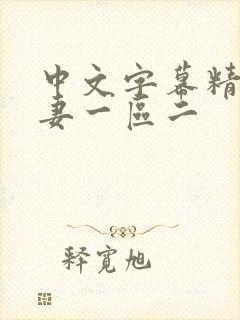 中文字幕精
妻一區二
释寬旭